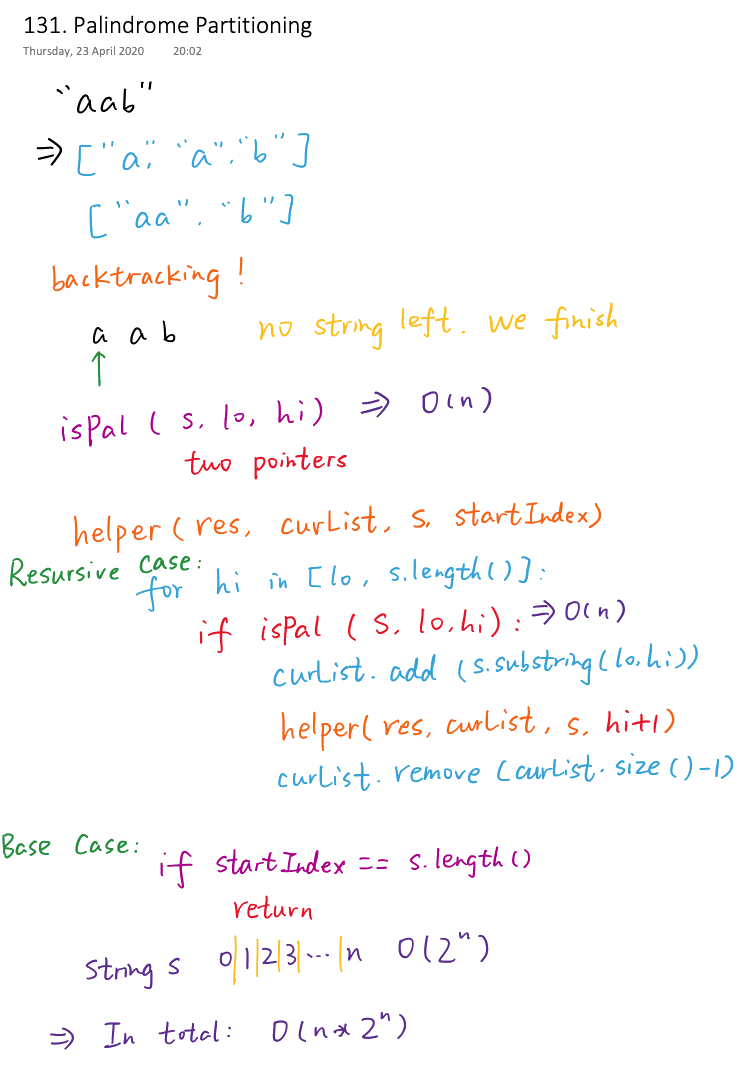 131. Palindrome Partitioning
Thursday, 23 April 2020 20:02
"aab"
⇒ ["a", "a", "b"]
["aa", "b"]
backtracking !
a a b no string left. we finish
↑
isPal ( s, lo, hi) ⇒ O(n)
two pointers
helper ( res, curList, s, startIndex)
Resursive Case:
for hi in [lo, s.length()]:
if isPal ( S, lo, hi) : ⇒ O(n)
curList. add (s.substring(lo, hi))
helper( res, curList, s, hi+1)
curList. remove (curList. size ()-1)
Base Case:
if startIndex == s. length ()
return
String s 0|1|2|3|...|n O(2ⁿ)
⇒ In total: O(n* 2ⁿ)